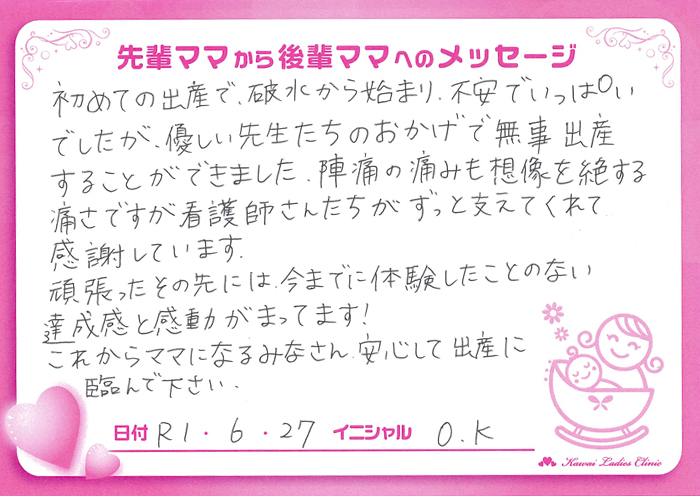 先輩ママから後輩ママへのメッセージ
初めての出産で、破水から始まり、不安でいっぱい
でしたが、優しい先生たちのおかげで無事出産
することができました。陣痛の痛みも想像を絶する
痛さですが看護師さんたちがずっと支えてくれて
感謝しています。
頑張ったその先には、今までに体験したことのない
達成感と感動がまってます!
これからママになるみなさん、安心して出産に
臨んで下さい。
日付 R1・6・27 イニシャル O.K
Kawai Ladies Clinic